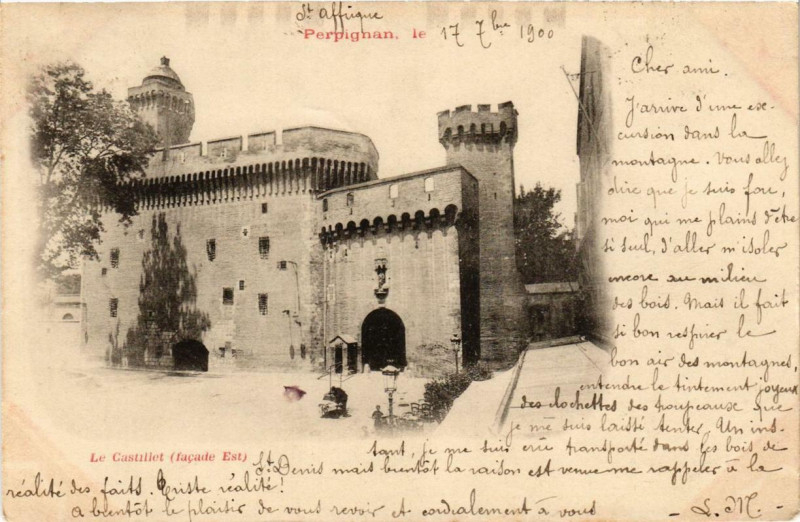 St Affrique
Perpignan, le 17 7bre 1900
Cher ami.
J'arrive d'une ex-
cursion dans la
montagne. Vous allez
dire que je suis fou,
moi qui me plains d'être
si seul, d'aller m'isoler
encore au milieu
des bois. Mais il fait
si bon respirer le
bon air des montagnes,
entendre le tintement joyeux
des clochettes des troupeaux que
je me suis laissé tenter. Un ins-
tant, je me suis cru transporté dans les bois de
St Denis mais bientôt la raison est venue me rappeler à la
réalité des faits. Triste réalité!
A bientôt le plaisir de vous revoir et cordialement à vous
- L. M. -
Le Castillet (façade Est)